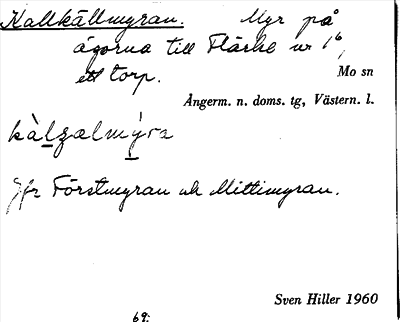 Kallkällmyran. Myr på
ägorna till Flärke nr 1⁶,
ett torp. Mo sn
Ångerm. n. doms. tg, Västern. l.
kàlʒælmy̆ra
Jfr Förstmyran och Mittimyran.
Sven Hiller 1960
69.